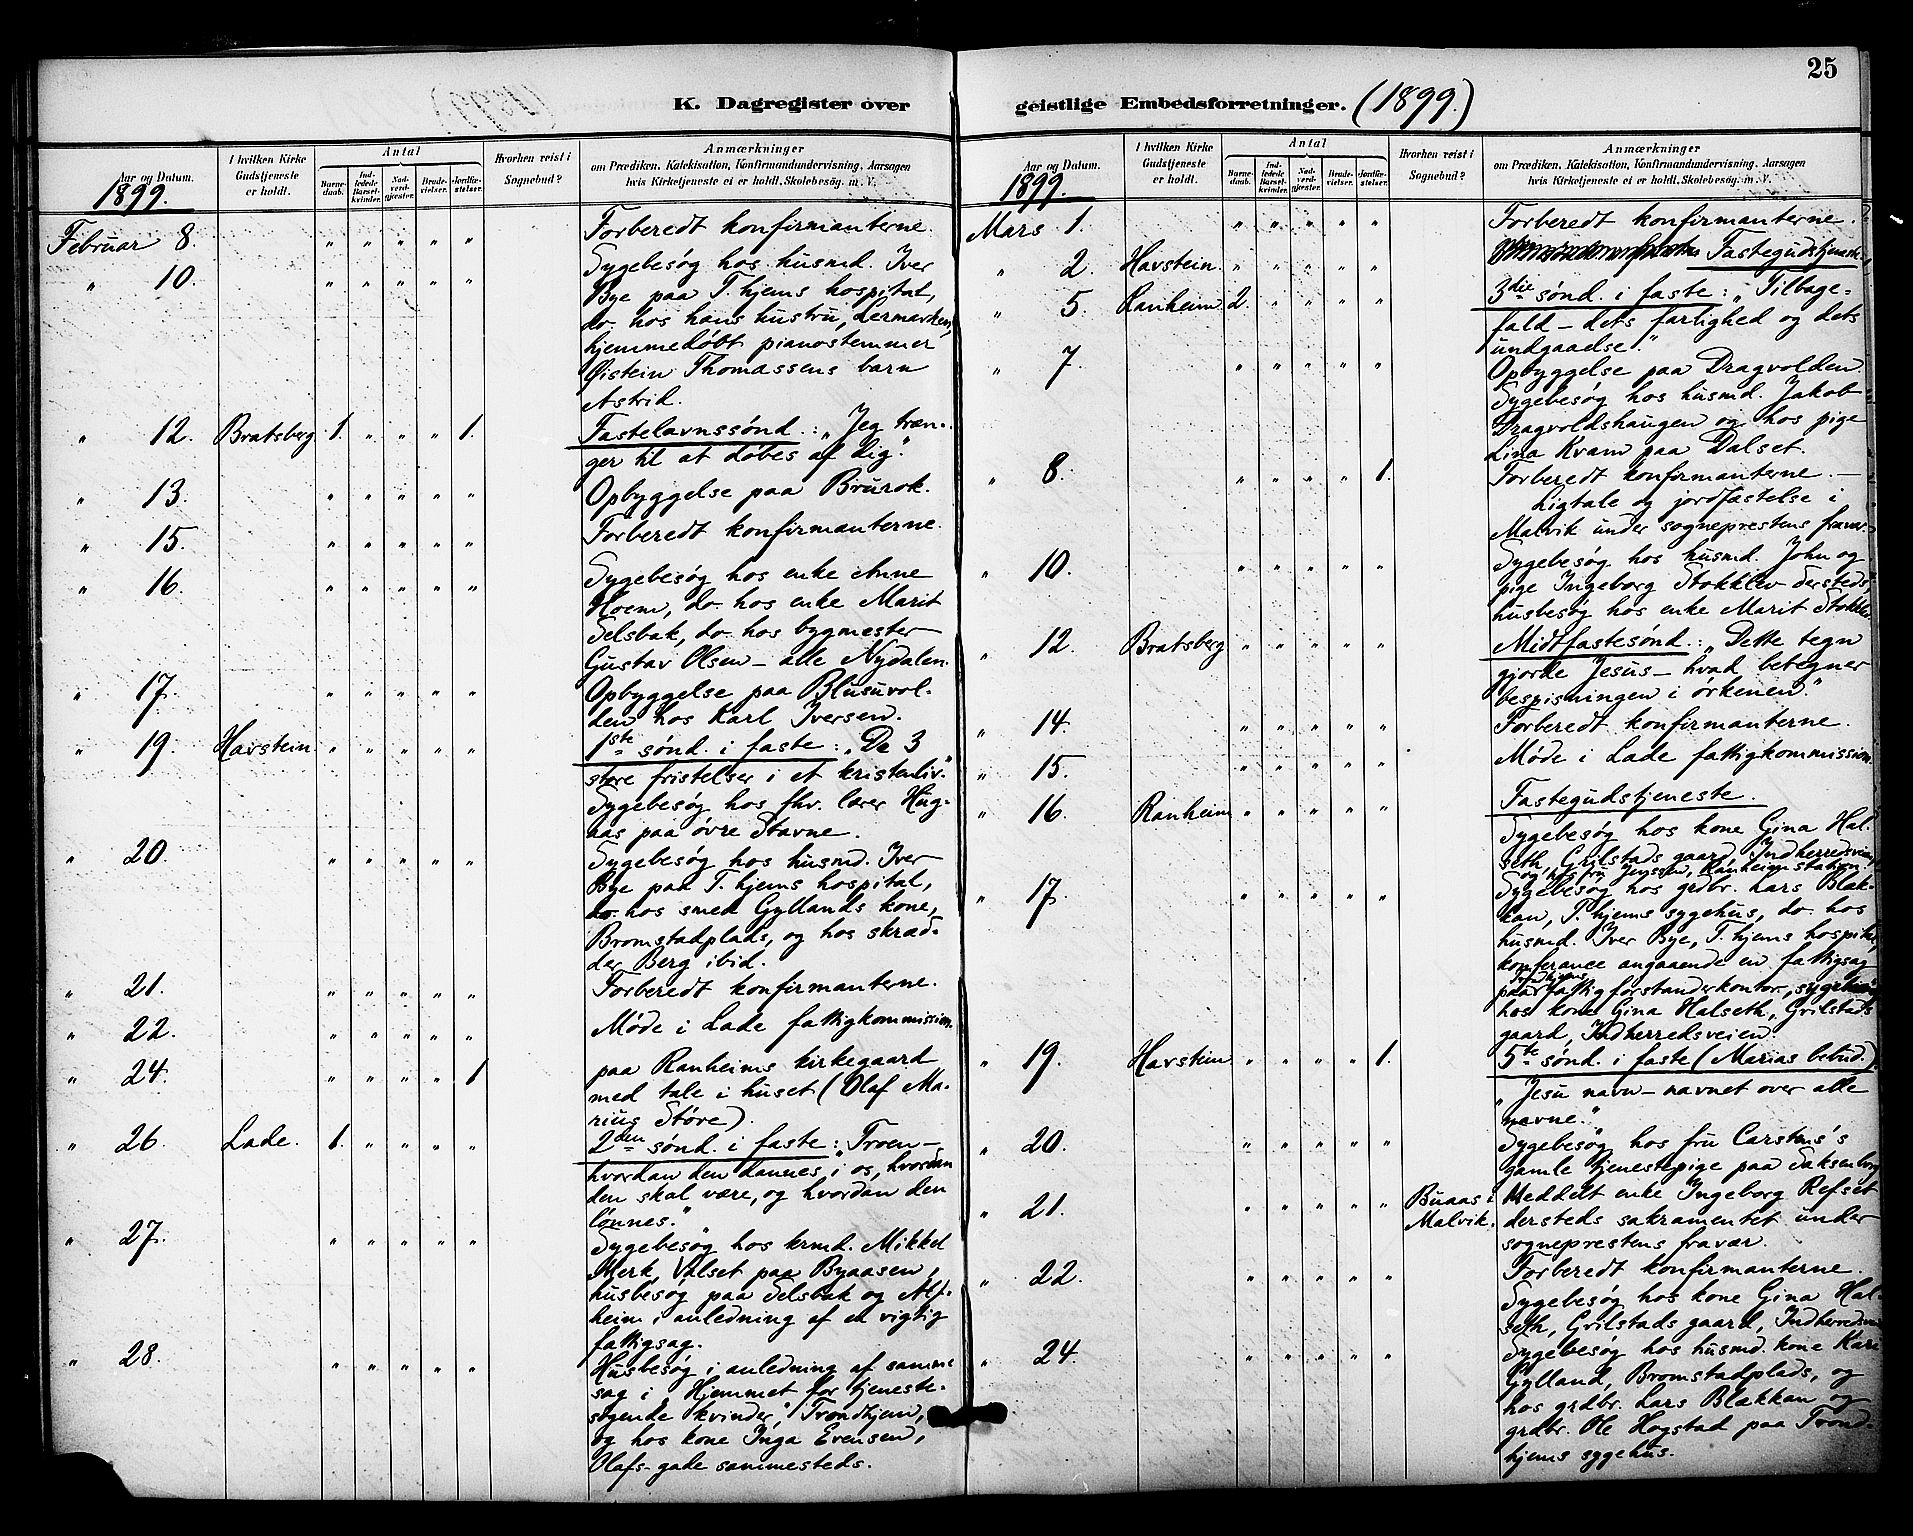 25
K. Dagregister over geistlige Embedsforretninger. (1899.)
Aar og Datum.
1899.
I hvilken Kirke
Gudstjeneste
er holdt.
Antal
Barne-
daab.
Ind-
ledede
Barsel-
kvinder.
Nad-
verd-
gjester.
Brude-
vielser.
Jordfæ-
stelser.
Hvorhen reist i
Sognebud?
Anmærkninger
om Prædiken, Katekisation, Konfirmandundervisning, Aarsagen
hvis Kirketjeneste ei er holdt, Skolebesøg, m. V.
Februar 8. " " " " " Forberedt konfirmanterne.
" 10. " " " " " Sygebesøg hos husmd. Iver
Bye paa T.hjems hospital,
do. hos hans hustru, Lermarken,
hjemmedøbt pianostemmer
Øistein Thomassens barn
Astrid.
" 12. Bratsberg. 1. " " " 1. Fastelavnssønd.: "Jeg træn-
ger til at døbes af dig."
" 13. " " " " " Opbyggelse paa Brurok.
" 15. " " " " " Forberedt konfirmanterne.
" 16. " " " " " Sygebesøg hos enke Anne
Hoem, do. hos enke Marit
Selsbak, do. hos bygmester
Gustav Olsen - alle Nydalen.
" 17. " " " " " Opbyggelse paa Blusuvol-
den hos Karl Iversen.
" 19. Havstein. " " " " " 1ste sønd. i faste: "De 3
store fristelser i et kristenliv."
Sygebesøg hos fhv. lærer Hug-
aas paa øvre Stavne.
" 20. " " " " " Sygebesøg hos husmd. Iver
Bye paa T.hjems hospital,
do. hos smed Gyllands kone,
Bromstadplads, og hos skræd-
der Berg ibid.
" 21. " " " " " Forberedt konfirmanterne.
" 22. " " " " " Møde i Lade fattigkommission.
" 24. " " " " 1 paa Ranheims kirkegaard
med tale i huset (Olaf Ma-
rius Støre).
" 26. Lade. 1. " " " " 2den sønd. i faste: "Troen -
hvordan den dannes i os, hvordan
den skal være, og hvordan den
lønnes."
" 27. " " " " " Sygebesøg hos krmd. Mikkel
Merk, Valset paa Byaasen,
husbesøg paa Selsbak og Alf-
heim i anledning af en vigtig
fattigsag.
" 28. " " " " " Husbesøg i anledning af samme
sag i "Hjemmet for tjeneste-
søgende kvinder", Trondhjem,
og hos kone Inga Evensen,
Olafs gade sammesteds.
Aar og Datum.
1899.
I hvilken Kirke
Gudstjeneste
er holdt.
Antal
Barne-
daab.
Ind-
ledede
Barsel-
kvinder.
Nad-
verd-
gjester.
Brude-
vielser.
Jordfæ-
stelser.
Hvorhen reist i
Sognebud?
Anmærkninger
om Prædiken, Katekisation, Konfirmandundervisning, Aarsagen
hvis Kirketjeneste ei er holdt, Skolebesøg, m. V.
Mars 1. " " " " " Forberedt konfirmanterne.
" 2. Havstein. " " " " " Fastegudstjeneste.
" 5. Ranheim. 2. " " " " 3die sønd. i faste: "Tilbage-
fald - dets farlighed og dets
undgaaelse."
" 7. " " " " " Opbyggelse paa Dragvolden
Sygebesøg hos husmd. Jakob
Dragvoldshaugen og hos pige
Lina Kvam paa Dalset.
" 8. " " " " 1. Forberedt konfirmanterne. -
Ligtale og jordfæstelse i
Malvik under sogneprestens fravær.
" 10. " " " " " Sygebesøg hos husmd. John og
pige Ingeborg Stokklev dersteds,
husbesøg hos enke Marit
" 12. Bratsberg " " " " " Midtfastesønd.: "Dette tegn
gjorde Jesus - hvad betegner
bespisningen i ørkenen."
" 14. " " " " " Forberedt konfirmanterne.
" 15. " " " " " Møde i Lade fattigkommission.
" 16. Ranheim " " " " " Fastegudstjeneste.
Sygebesøg hos kone Gina Hal-
seth, Grilstads gaard, Indherredsveien,
og hos fru Jenssen, Ranheim station.
" 17. " " " " " Sygebesøg hos grdbr. Lars Blæk-
kan, T.hjems sygehus, do. hos
husmd. Iver Bye, T.hjems hospital
konferance angaaende en fattigsag
paa fattigforstanderkontor,
hos kone Gina Halseth, Grilstads
gaard, Indherredsveien.
" 19. Havstein " " " " 1. 5te sønd. i faste (Marias bebud.):
"Jesu navn - navnet over alle
navne."
" 20. " " " " " Sygebesøg hos fru Carstens's
gamle tjenestepige paa Saksenborg
" 21. " " " " " Buaas i
Malvik.
Meddelt enke Ingeborg Refset
dersteds sakramentet under
sogneprestens fravær.
" 22. " " " " " Forberedt konfirmanterne.
Sygebesøg hos kone Gina Hal-
seth, Grilstads gaard, Indherredsv.
" 24. " " " " " Sygebesøg hos husmd. kone Kari
Gylland, Bromstadplads, og
hos grdbr. Lars Blækkan og
grdbr. Ole Hogstad paa Trond-
hjems sygehus.